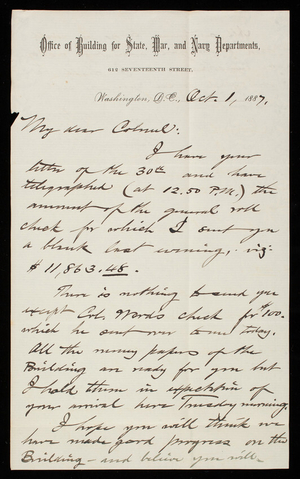 Office of Building for State, War, and Navy Departments,
612 SEVENTEENTH STREET,
Washington, D.C., Oct. 1, 1887.
My dear Colonel:
I have your
letter of the 30th and have
telegraphed (at 12.50 P.M.) the
amount of the general roll
check for which I sent you
a blank last evening, viz:
$11,863.48.
There is nothing to send you
except Col. Words check for $100-
which he sent over to me today.
All the money papers of the
Building are ready for you but
I hold them in expectation of
your arrival here Tuesday morning.
I hope you will think we
have made good progress on the
Building - and believe you will -